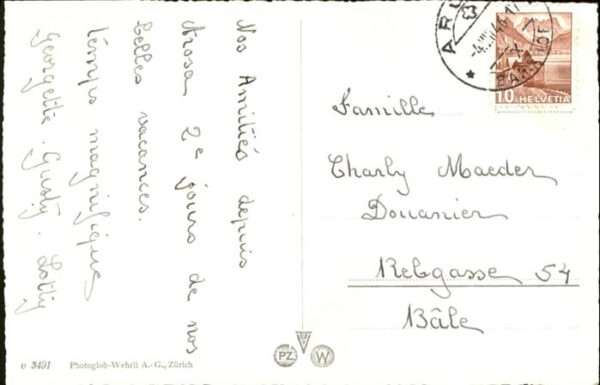 Nos Amitiés depuis
Arosa 2e jours de nos
belles vacances.
temps magnifique
Georgette. Gusty. Lotty
Famille
Charly Maeder
Douanier
Rebgasse 54
Bâle
10 HELVETIA
v 3491 Photoglob-Wehrli A.-G., Zürich
PZ W